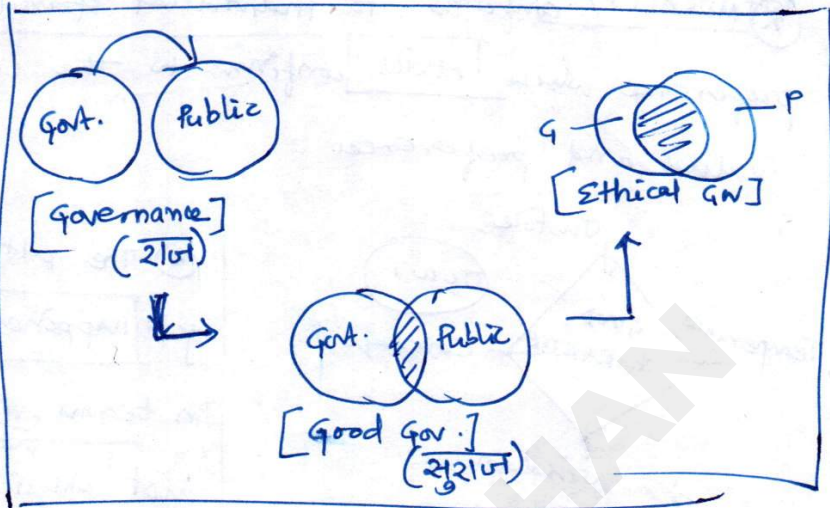 Govt. Public
[Governance]
(राज)
G P
[Ethical Gov]
Govt. Public
[Good Gov.]
(सुराज)
HAN